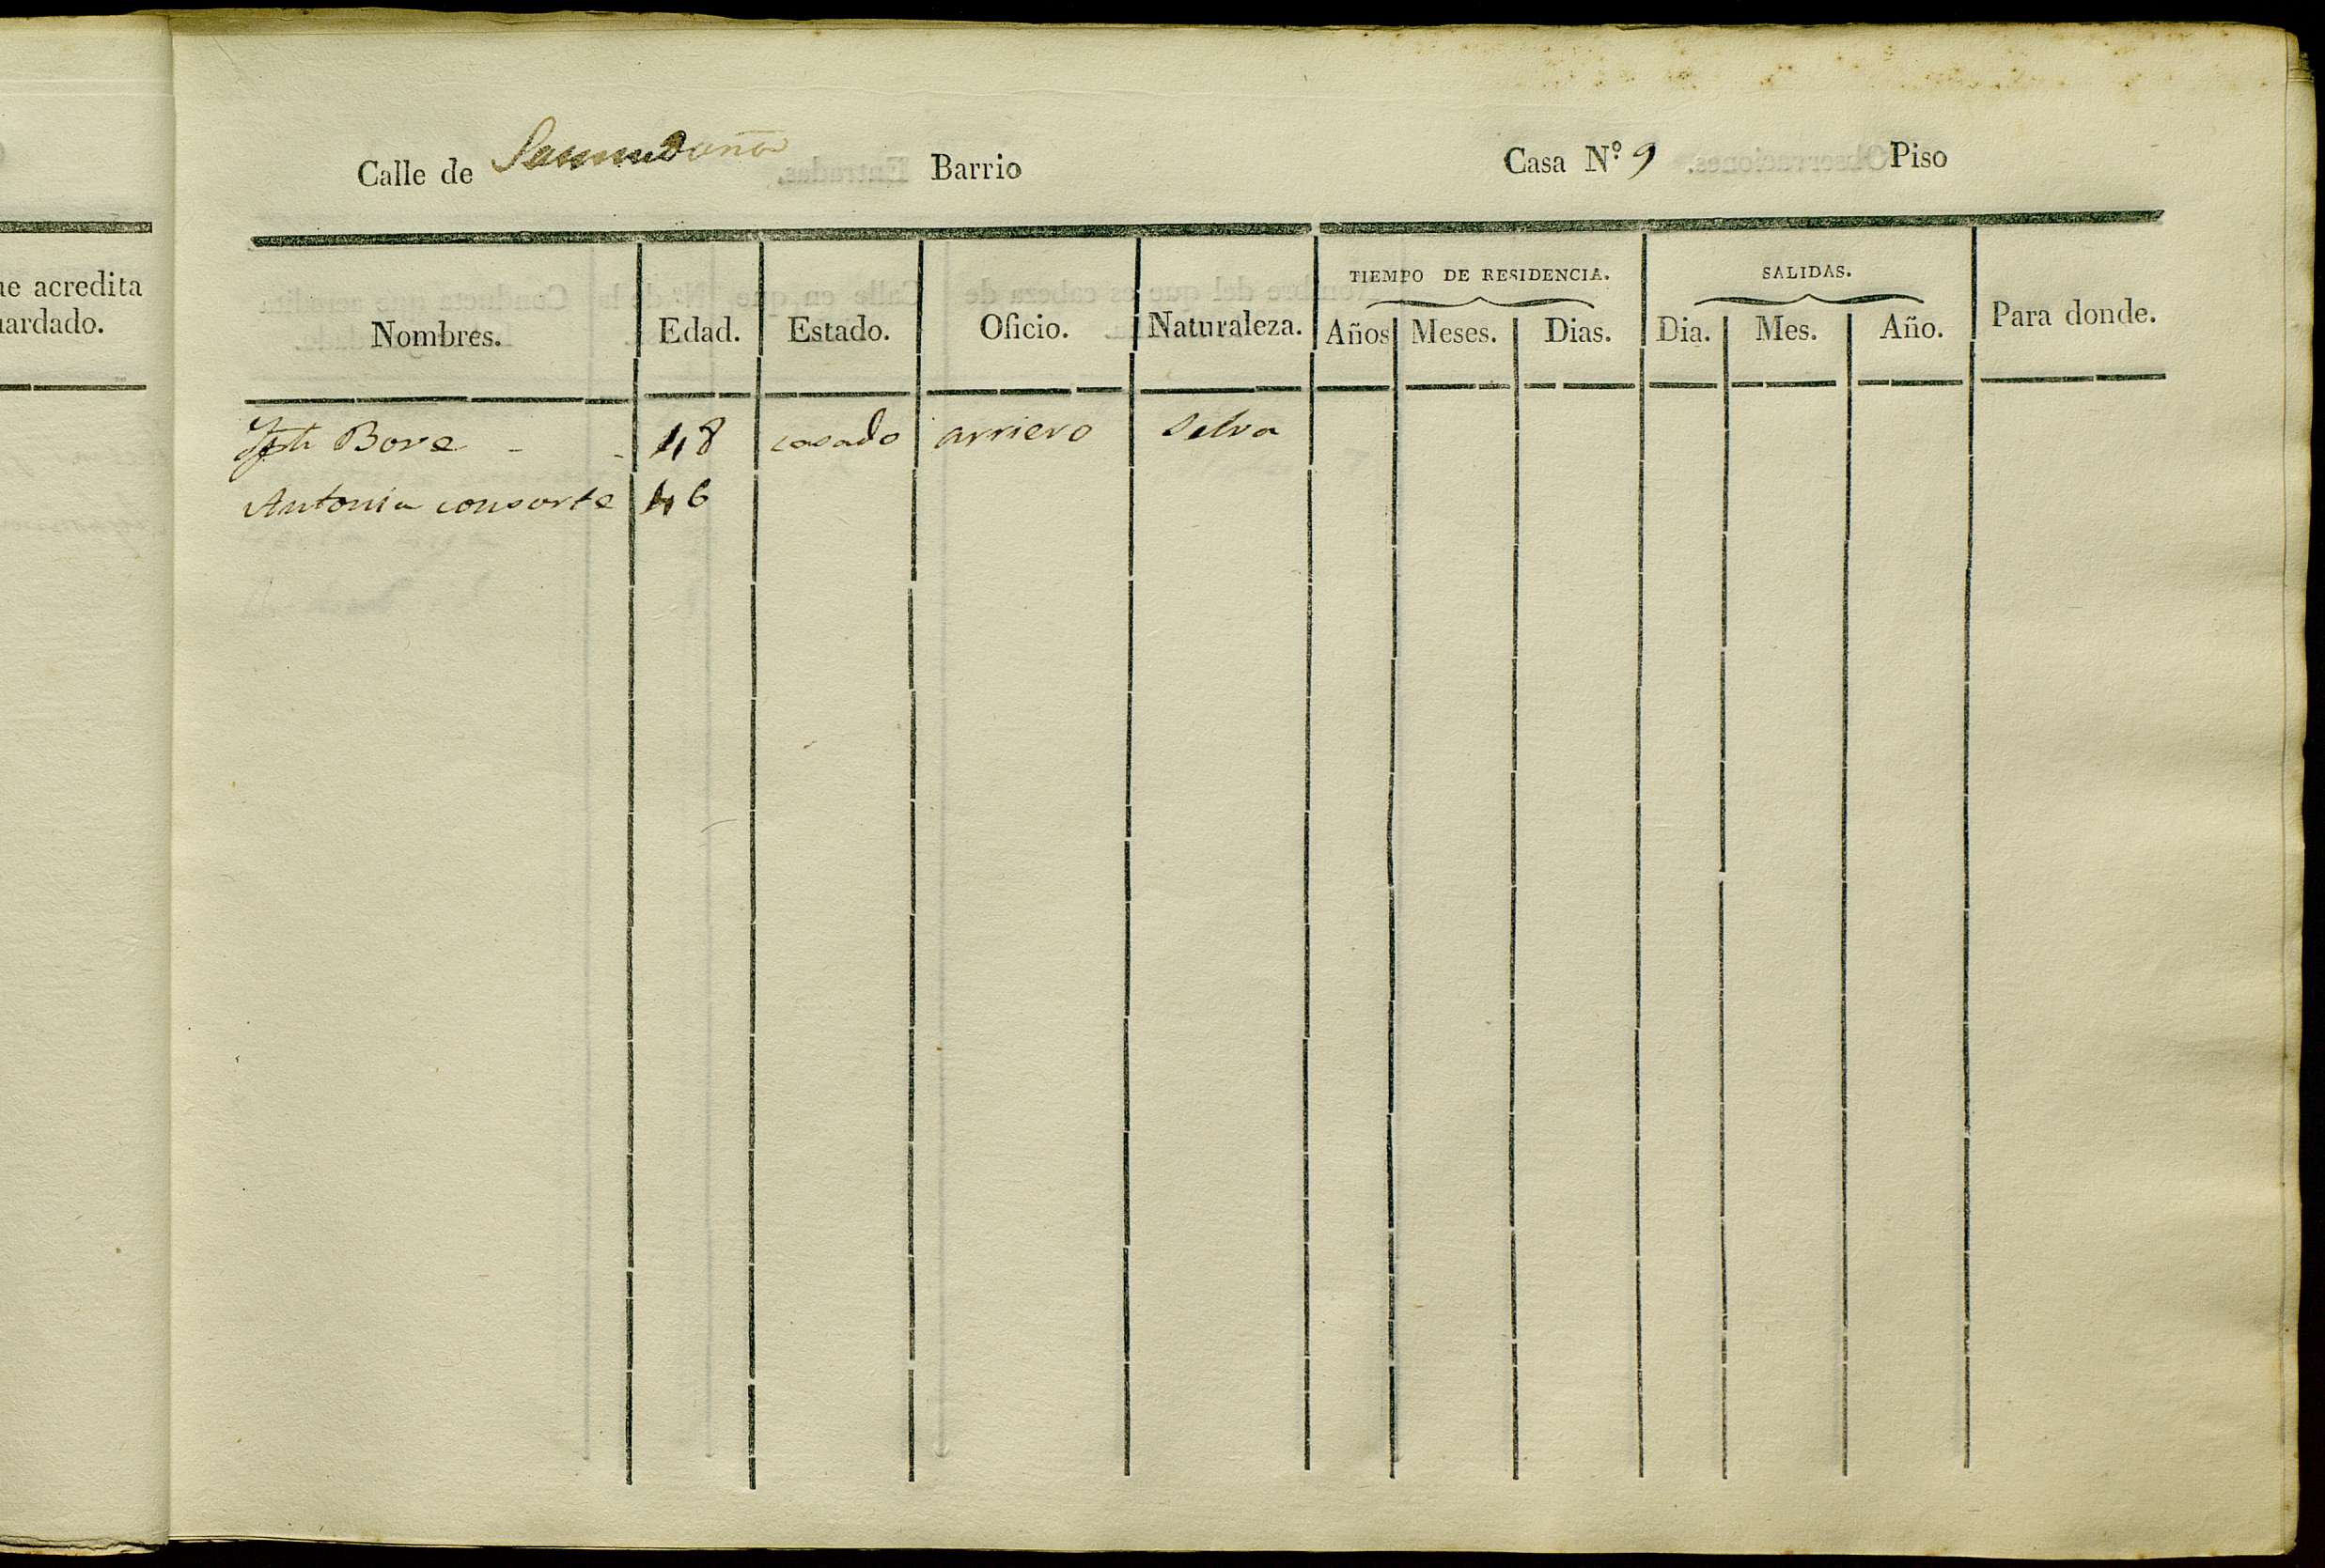 ue acredita
uardado.
Calle de Barrio Casa N.º 9 Piso
TIEMPO DE RESIDENCIA. SALIDAS.
Nombres. Edad. Estado. Oficio. Naturaleza. Años Meses. Dias. Dia. Mes. Año. Para donde.
Jph Bove - - 48 casado arriero Selva
Antonia consorte 46